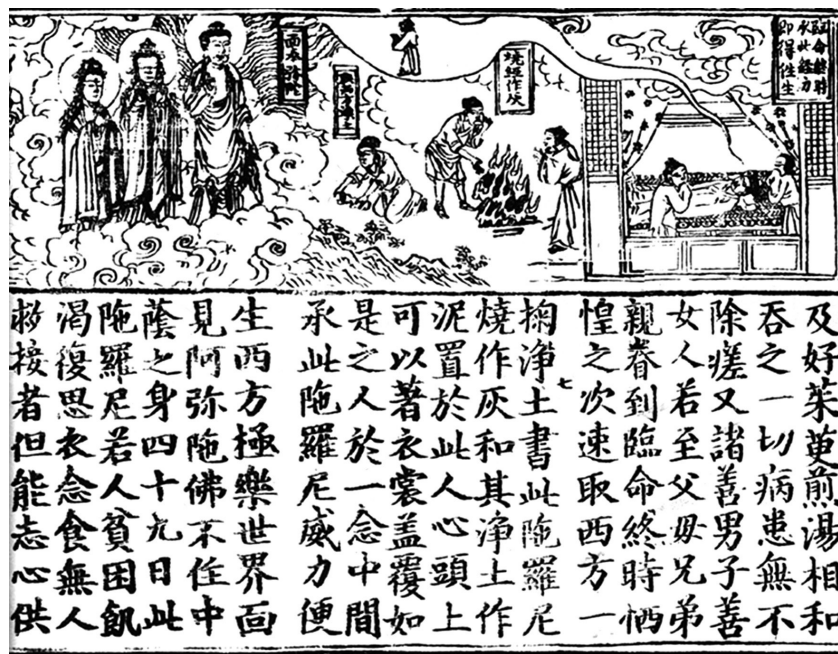 命終時
承此經力
即得往生
燒經作灰
面奉弥陁
及好茱萸煎湯相和
吞之一切病患無不
除瘥又諸善男子善
女人若至父母兄弟
親眷到臨命終時恓
惶之次速取西方一
七
掬淨土書此陁羅尼
燒作灰和其淨土作
泥置於此人心頭上
可以著衣裳盖覆如
是之人於一念中間
承此陁羅尼威力便
生西方極樂世界面
見阿弥陁佛不住中
蔭之身四十九日此
陁羅尼若人貧困飢
渴復思衣念食無人
救接者但能志心供